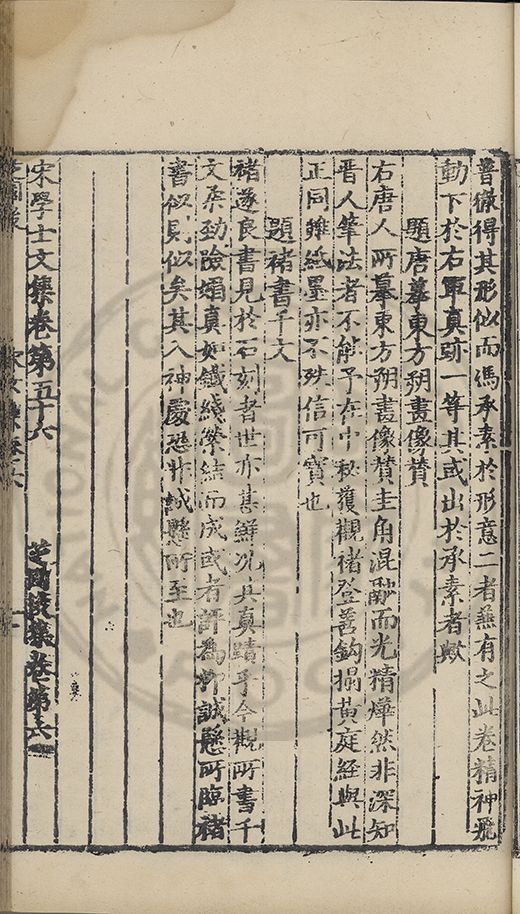 普徹得其形似而馮承素於形意二者兼有之此卷精神飛
動下於右軍真跡一等其或出於承素者歟
題唐摹東方朔畫像贊
右唐人所摹東方朔畫像贊圭角混融而光精燁然非深知
晉人筆法者不能予在中秘獲觀褚登善鈎搨黃庭經與此
正同雖紙墨亦不殊信可寶也
題褚書千文
褚遂良書見於石刻者世亦甚鮮况其真蹟乎今觀所書千
文柔勁險媚真如鐵綫縈結而成或者評為柳誠懸所臨褚
書似則似矣其入神處恐非誠懸所至也
宋學士文集卷第五十六
芝園後集卷第六